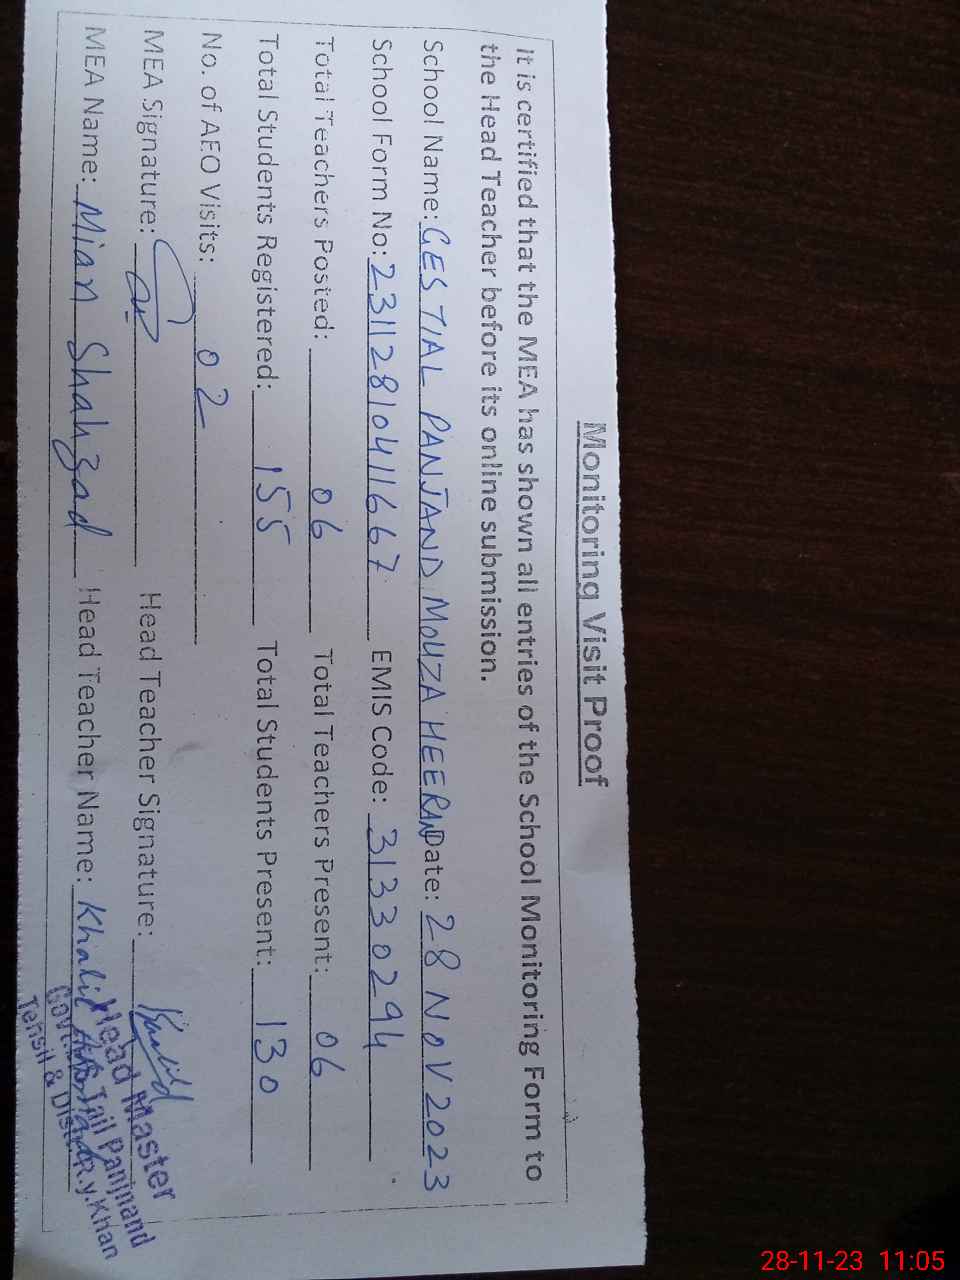 Monitoring Visit Proof
It is certified that the MEA has shown all entries of the School Monitoring Form to
the Head Teacher before its online submission.
School Name: GES TIAL PANJAND MOUZA HEERAN Date: 28 NOV 2023
School Form No: 23112810411667 EMIS Code: 31330294
Total Teachers Posted: 06 Total Teachers Present: 06
Total Students Registered: 155 Total Students Present: 130
No. of AEO Visits: 02
MEA Signature: Head Teacher Signature: Khalid
MEA Name: Mian Shahzad Head Teacher Name: Khalid
Head Master
Govt. Tail Panjnand
Tehsil & Distt. R.Y.Khan
28-11-23 11:05